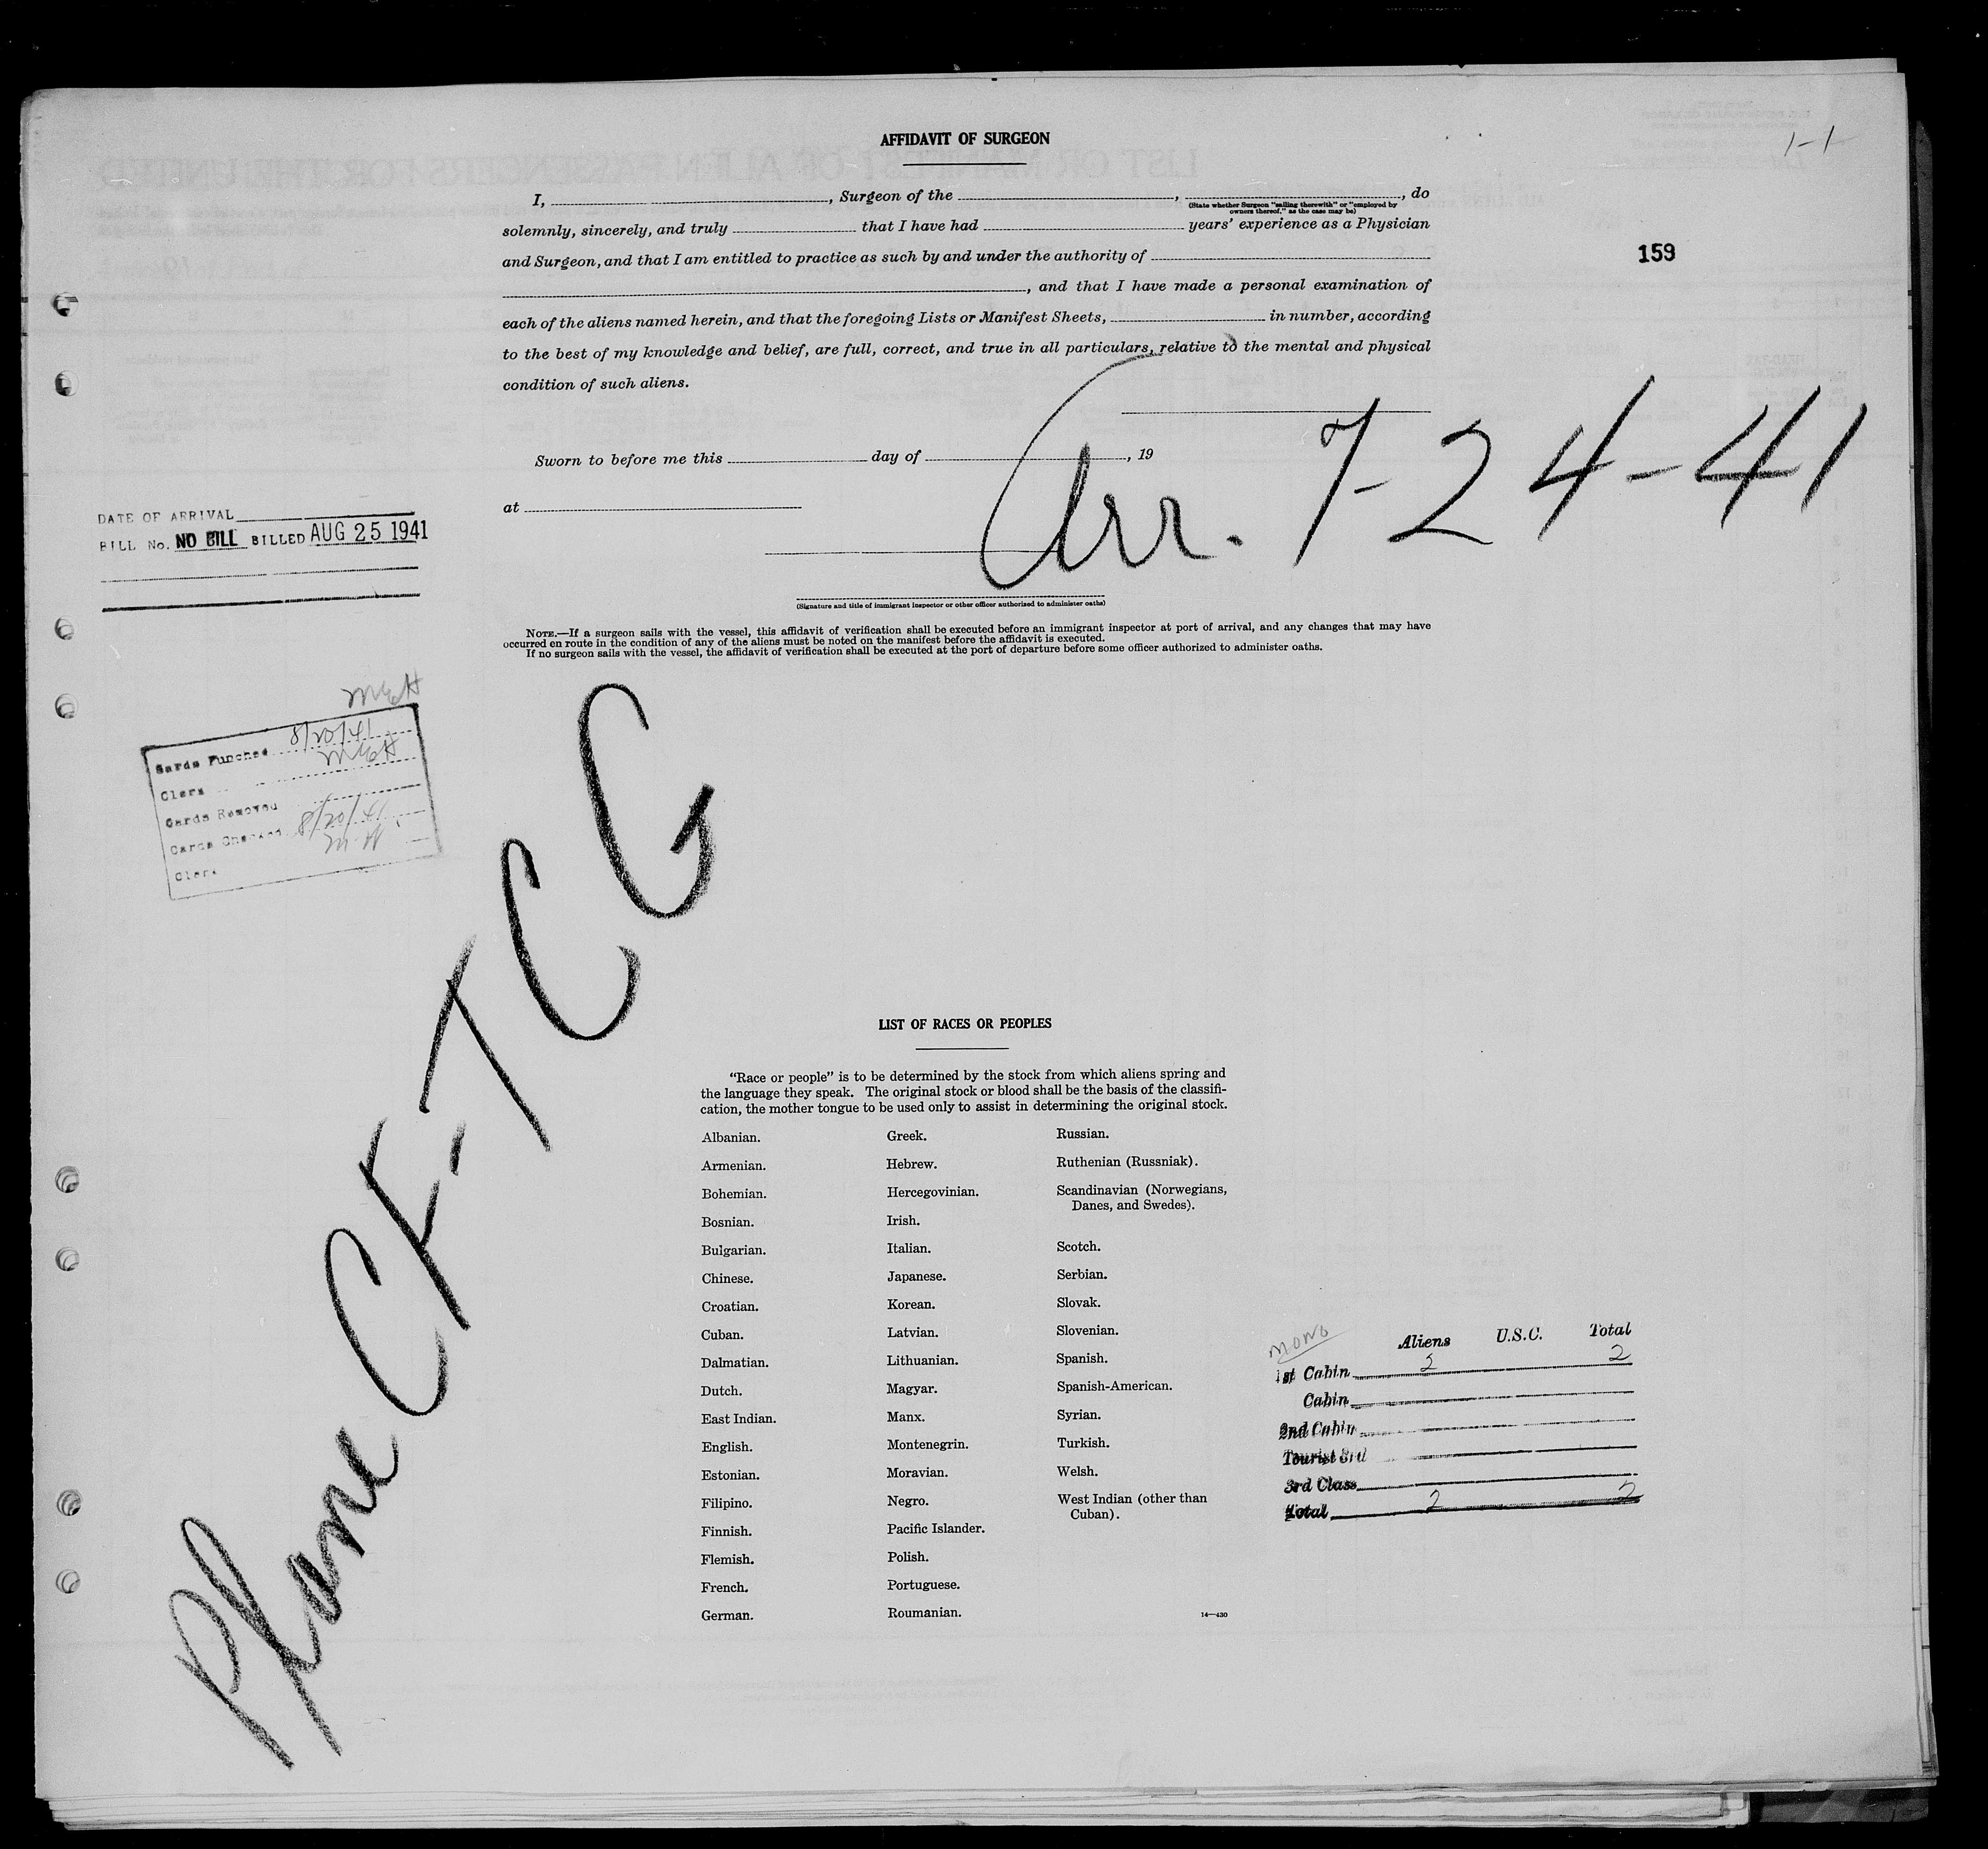 AFFIDAVIT OF SURGEON
1-1
I, , Surgeon of the , , do
(State whether Surgeon "sailing therewith" or "employed by
owners thereof," as the case may be)
solemnly, sincerely, and truly that I have had years' experience as a Physician
and Surgeon, and that I am entitled to practice as such by and under the authority of
159
, and that I have made a personal examination of
each of the aliens named herein, and that the foregoing Lists or Manifest Sheets, in number, according
to the best of my knowledge and belief, are full, correct, and true in all particulars, relative to the mental and physical
condition of such aliens.
Arr. 7-24-41
Sworn to before me this day of , 19
at
DATE OF ARRIVAL
BILL No. NO BILL BILLED AUG 25 1941
(Signature and title of immigrant inspector or other officer authorized to administer oaths)
NOTE.—If a surgeon sails with the vessel, this affidavit of verification shall be executed before an immigrant inspector at port of arrival, and any changes that may have
occurred en route in the condition of any of the aliens must be noted on the manifest before the affidavit is executed.
If no surgeon sails with the vessel, the affidavit of verification shall be executed at the port of departure before some officer authorized to administer oaths.
MEH
Cards Punched 8/20/41
Clerk MEH
Cards Removed
Cards Checked 8/20/41
Clerk M.H.
Plane CF-TCG
LIST OF RACES OR PEOPLES
"Race or people" is to be determined by the stock from which aliens spring and
the language they speak. The original stock or blood shall be the basis of the classifi-
cation, the mother tongue to be used only to assist in determining the original stock.
Albanian.
Armenian.
Bohemian.
Bosnian.
Bulgarian.
Chinese.
Croatian.
Cuban.
Dalmatian.
Dutch.
East Indian.
English.
Estonian.
Filipino.
Finnish.
Flemish.
French.
German.
Greek.
Hebrew.
Hercegovinian.
Irish.
Italian.
Japanese.
Korean.
Latvian.
Lithuanian.
Magyar.
Manx.
Montenegrin.
Moravian.
Negro.
Pacific Islander.
Polish.
Portuguese.
Roumanian.
Russian.
Ruthenian (Russniak).
Scandinavian (Norwegians,
Danes, and Swedes).
Scotch.
Serbian.
Slovak.
Slovenian.
Spanish.
Spanish-American.
Syrian.
Turkish.
Welsh.
West Indian (other than
Cuban).
14—430
MONO
Aliens U.S.C. Total
1st Cabin 2 2
Cabin
2nd Cabin
Tourist 3rd
3rd Class
Total 2 2